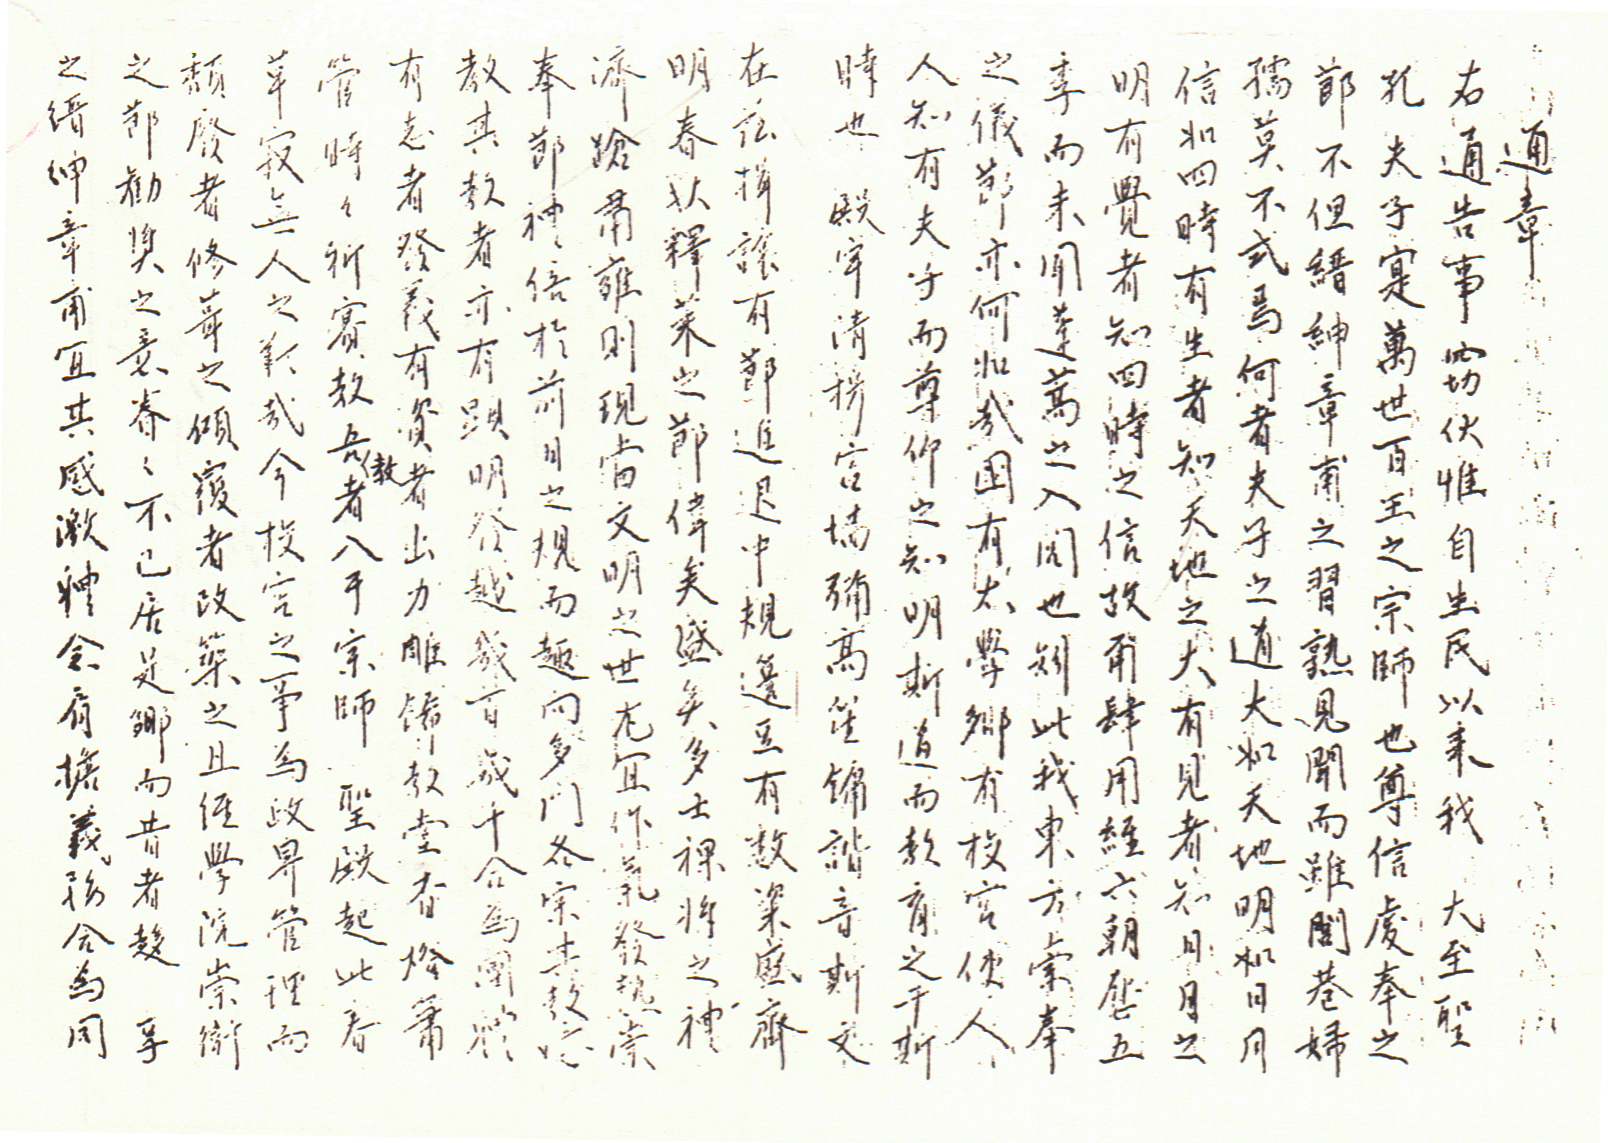 通章
右通告事窃伏惟自生民以來我 大至聖
孔夫子寔萬世百王之宗師也尊信處奉之
節不但縉紳章甫之習熟見聞而雖閭巷婦
孺莫不式焉何者夫子之道大如天地明如日月
信如四時有生者知天地之大有見者知日月之
明有覺者知四時之信故甭肆用經六朝歷五
季而未聞達蒿之入闕也矧此我東方崇奉
之儀節亦何如哉國有太學鄉有校宮使人
人知有夫子而尊仰之知明斯道而教育之于斯
時也 殿宇清穆宮墻彌高笙鏞諧音斯文
在玆揖讓有節進退中規籩豆有数粢盛齊
明春秋釋菜之節偉矣盛矣多士祼將之禮
濟蹌肅雍則現當文明之世尤宜作氣發執崇
奉節神信於前日之規而趣向多門各宗其教
教其教者亦有顯明發越幾百歲千合為團體
有志者發義有資者出力雕飾教堂香燈簫
管時々祈賽教吾教者八千宗師 聖殿起此春
草寂無人之歎哉今校宮之事為政界管理而
頹廢者修葺之傾覆者改築之且經學院崇衛
之節勸奬之意眷々不已居是鄉而昔者發 享
之縉紳章甫宜其感激軆念肩擔義務合為同